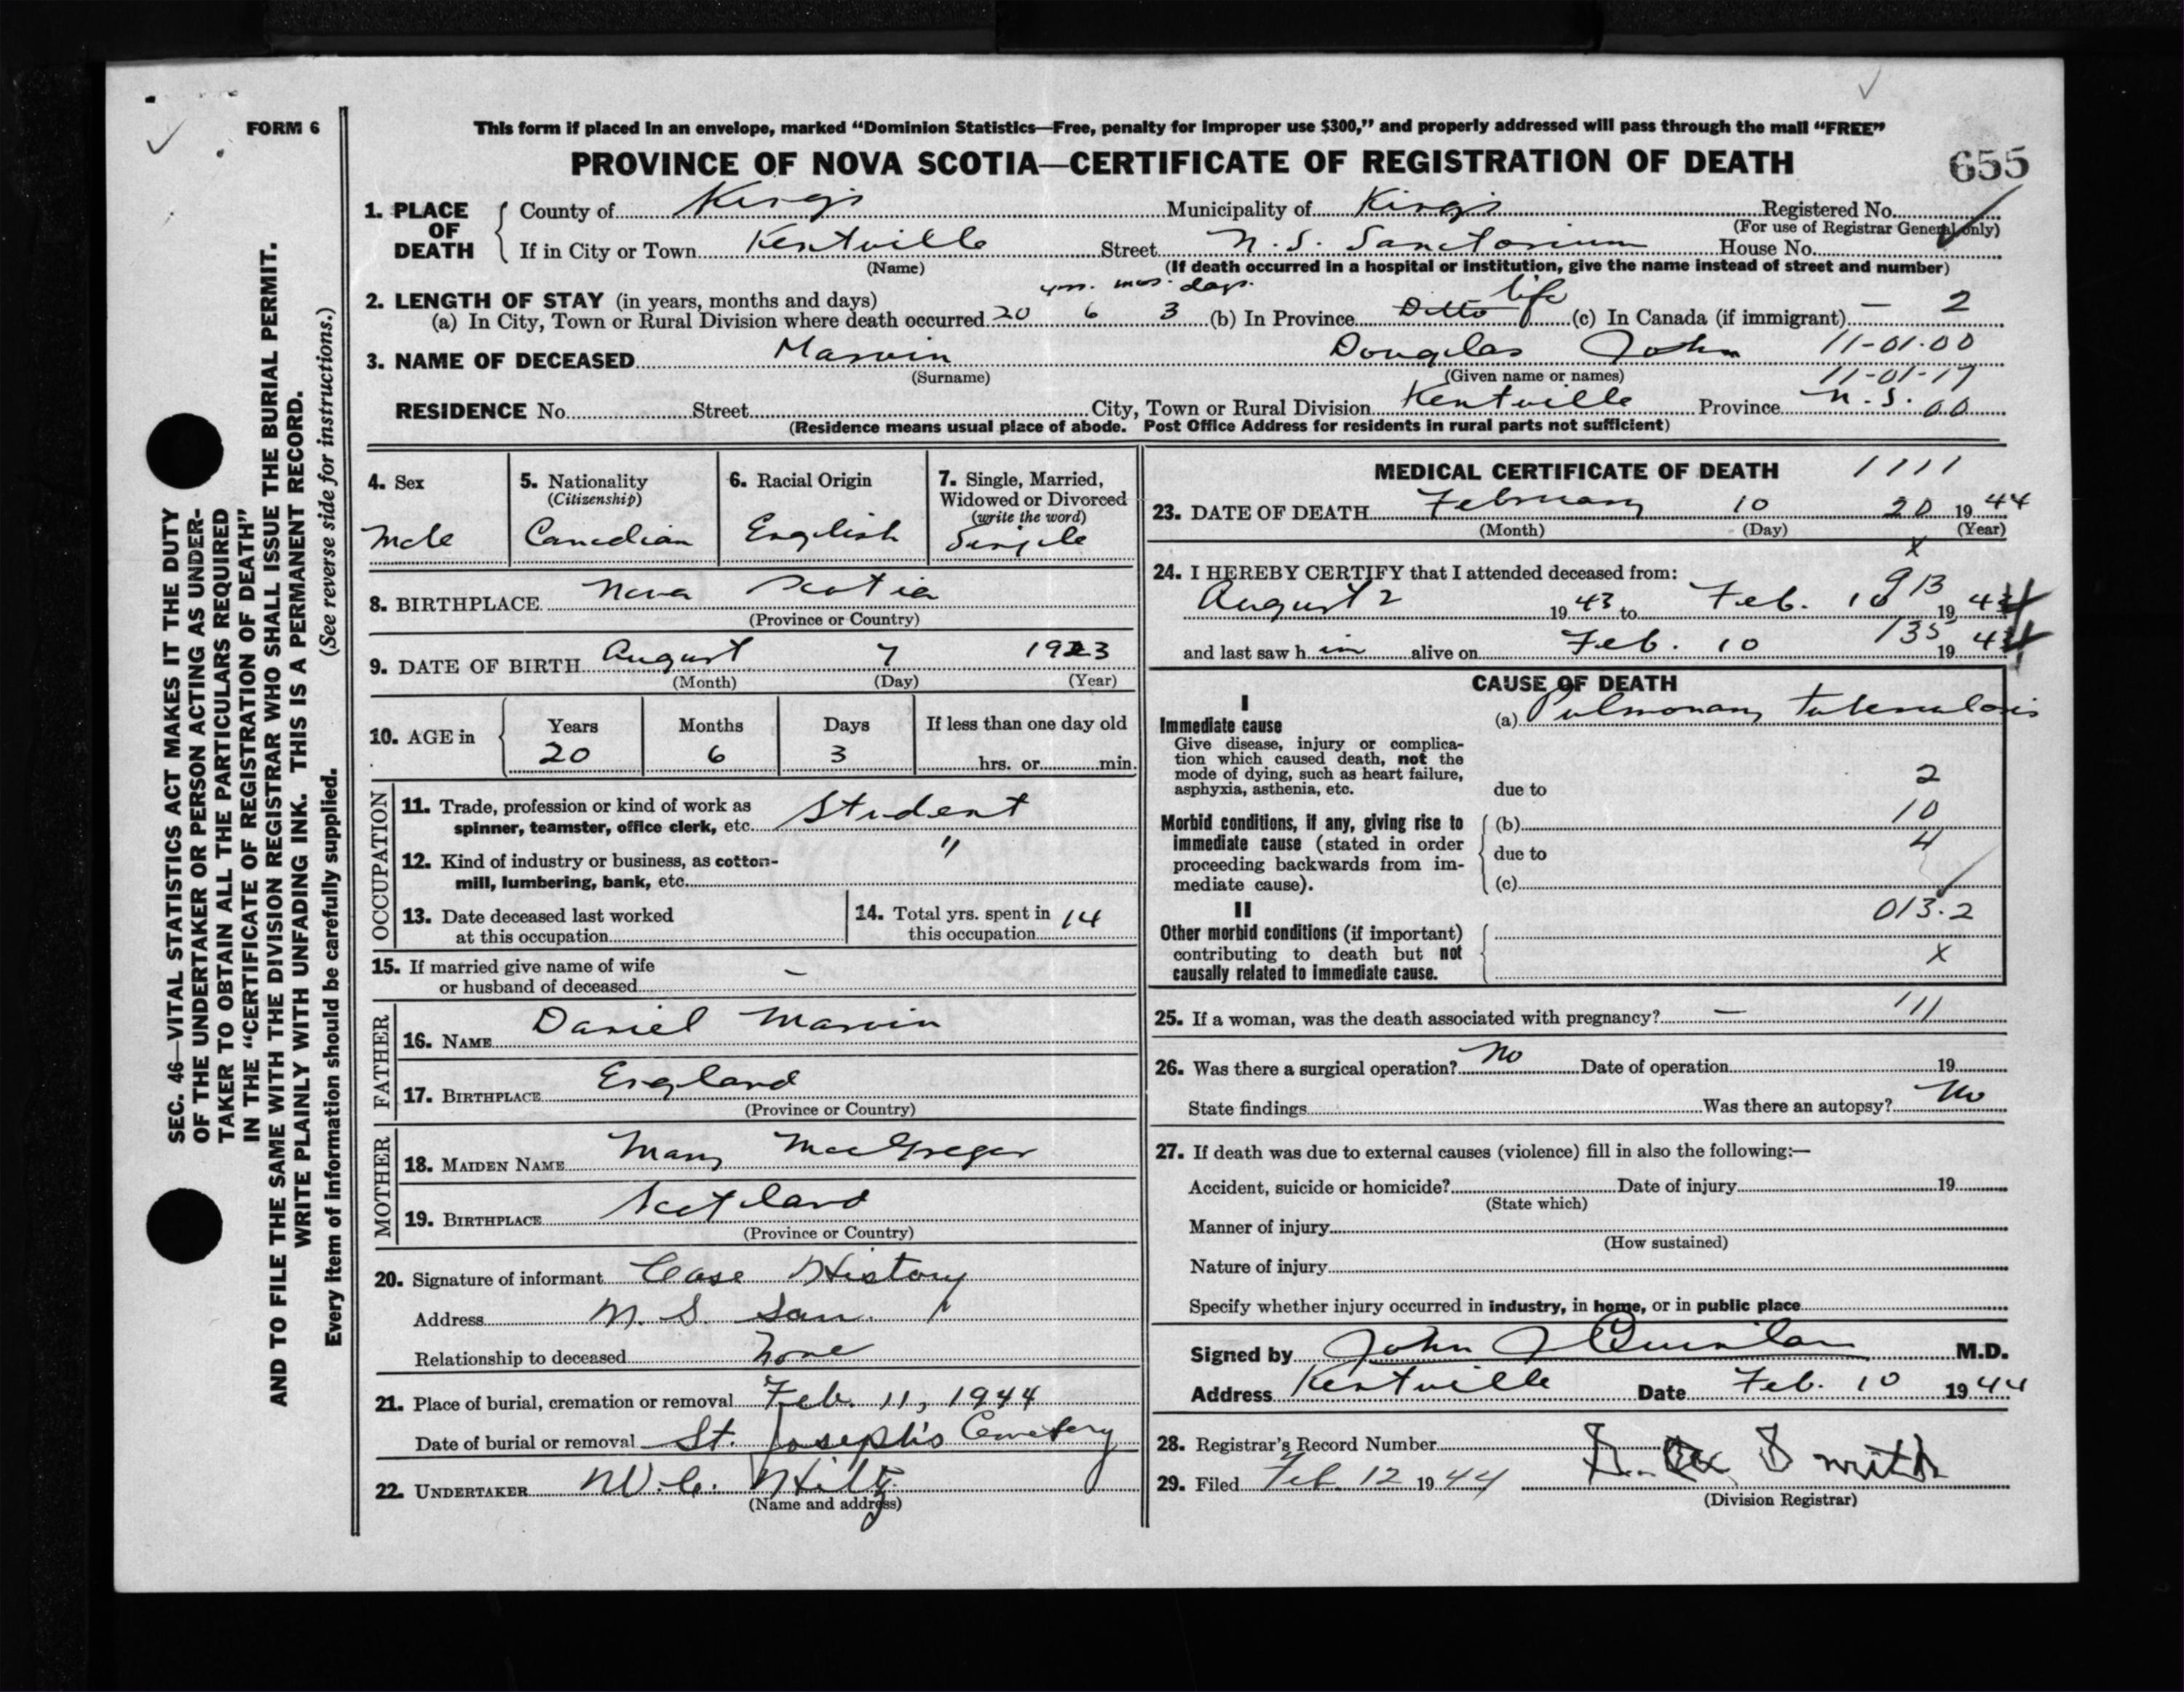 FORM 6
This form if placed in an envelope, marked “Dominion Statistics—Free, penalty for improper use $300,” and properly addressed will pass through the mail “FREE”
PROVINCE OF NOVA SCOTIA—CERTIFICATE OF REGISTRATION OF DEATH
655
1. PLACE OF DEATH
County of Kings Municipality of Kings Registered No.
(For use of Registrar General only)
If in City or Town Kentville Street N. S. Sanctorium House No.
(Name) (If death occurred in a hospital or institution, give the name instead of street and number)
2. LENGTH OF STAY (in years, months and days) yrs. mos. days.
(a) In City, Town or Rural Division where death occurred 20 6 3 (b) In Province Ditto life (c) In Canada (if immigrant) — 2
3. NAME OF DECEASED Marvin Douglas John 11-01-00
(Surname) (Given name or names) 11-01-17
RESIDENCE No. Street City, Town or Rural Division Kentville Province N. S. 00
(Residence means usual place of abode. Post Office Address for residents in rural parts not sufficient)
4. Sex
Male
5. Nationality
(Citizenship)
Canadian
6. Racial Origin
English
7. Single, Married,
Widowed or Divorced
(write the word)
Single
8. BIRTHPLACE Nova Scotia
(Province or Country)
9. DATE OF BIRTH August 7 1923
(Month) (Day) (Year)
10. AGE in
Years Months Days If less than one day old
20 6 3 hrs. or min.
OCCUPATION
11. Trade, profession or kind of work as
spinner, teamster, office clerk, etc. Student
12. Kind of industry or business, as cotton-
mill, lumbering, bank, etc. "
13. Date deceased last worked
at this occupation
14. Total yrs. spent in
this occupation 14
15. If married give name of wife
or husband of deceased —
FATHER
16. NAME Daniel Marvin
17. BIRTHPLACE England
(Province or Country)
MOTHER
18. MAIDEN NAME Mary MacGregor
19. BIRTHPLACE Scotland
(Province or Country)
20. Signature of informant Case History
Address N. S. San.
Relationship to deceased None
21. Place of burial, cremation or removal Feb. 11, 1944
Date of burial or removal St. Joseph's Cemetery
22. UNDERTAKER W. C. Hiltz
(Name and address)
MEDICAL CERTIFICATE OF DEATH 1111
23. DATE OF DEATH February 10 20 1944
(Month) (Day) (Year)
x
24. I HEREBY CERTIFY that I attended deceased from: 913
August 2 1943 to Feb. 10 1944
135
and last saw him alive on Feb. 10 1944
CAUSE OF DEATH
I
Immediate cause
Give disease, injury or complica-
tion which caused death, not the
mode of dying, such as heart failure,
asphyxia, asthenia, etc.
(a) Pulmonary tuberculosis
2
due to
10
Morbid conditions, if any, giving rise to
immediate cause (stated in order
proceeding backwards from im-
mediate cause).
(b)
4
due to
(c)
013.2
II
Other morbid conditions (if important)
contributing to death but not
causally related to immediate cause.
x
25. If a woman, was the death associated with pregnancy? — 111
26. Was there a surgical operation? No Date of operation 19
State findings Was there an autopsy? No
27. If death was due to external causes (violence) fill in also the following:—
Accident, suicide or homicide? Date of injury 19
(State which)
Manner of injury
(How sustained)
Nature of injury
Specify whether injury occurred in industry, in home, or in public place
Signed by John J Quinlan M.D.
Address Kentville Date Feb. 10 1944
28. Registrar's Record Number
29. Filed Feb. 12 1944 Smith
(Division Registrar)
SEC. 46—VITAL STATISTICS ACT MAKES IT THE DUTY
OF THE UNDERTAKER OR PERSON ACTING AS UNDER-
TAKER TO OBTAIN ALL THE PARTICULARS REQUIRED
IN THE “CERTIFICATE OF REGISTRATION OF DEATH”
AND TO FILE THE SAME WITH THE DIVISION REGISTRAR WHO SHALL ISSUE THE BURIAL PERMIT.
WRITE PLAINLY WITH UNFADING INK. THIS IS A PERMANENT RECORD.
Every item of information should be carefully supplied. (See reverse side for instructions.)